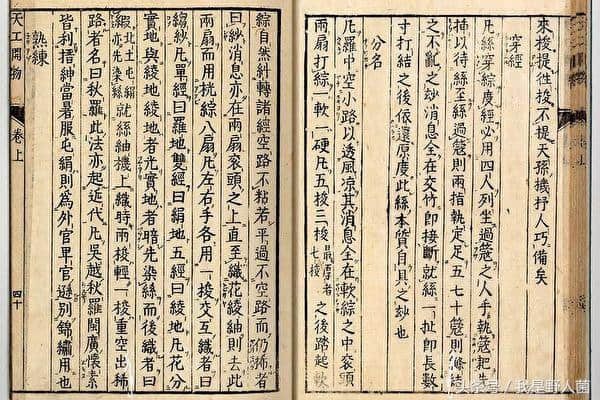 來梭提往梭不提天孫機抒人巧備矣
穿經
凡絲穿綜度經必用四人列坐過蔻之人手執蔻耙先
插以待絲至絲過蔻則兩指執定足五七十蔻則絛結
之不亂之妙消息全在交竹即接斷就絲一扯即長數
寸打結之後依還原度此絲本質自具之妙也
分名
凡羅中空小路以透風涼其消息全在軟綜之中衮頭
兩扇打綜一軟一硬凡五梭三梭最厚者七梭之後踏起軟
綜自然糾轉諸經空路不粘若平過不空路而仍稀者
曰紗消息亦在兩扇衮頭之上直至織花綾紬則去此
兩扇而用桄綜八扇凡左右手各用一梭交互織者曰
縐紗凡單經曰羅地雙經曰絹地五經曰綾地凡花分
實地與綾地綾地者光實地者暗先染絲而後織者曰
緞北土屯絹亦先染絲就絲紬機上織時兩梭輕一梭重空出稀
路者名曰秋羅此法亦起近代凡吳越秋羅閩廣懷素
皆利搢紳當暑服屯絹則為外官卑官遜別錦繡用也
熟練
天工開物 卷上 四十
头条号 / 我是野人菌